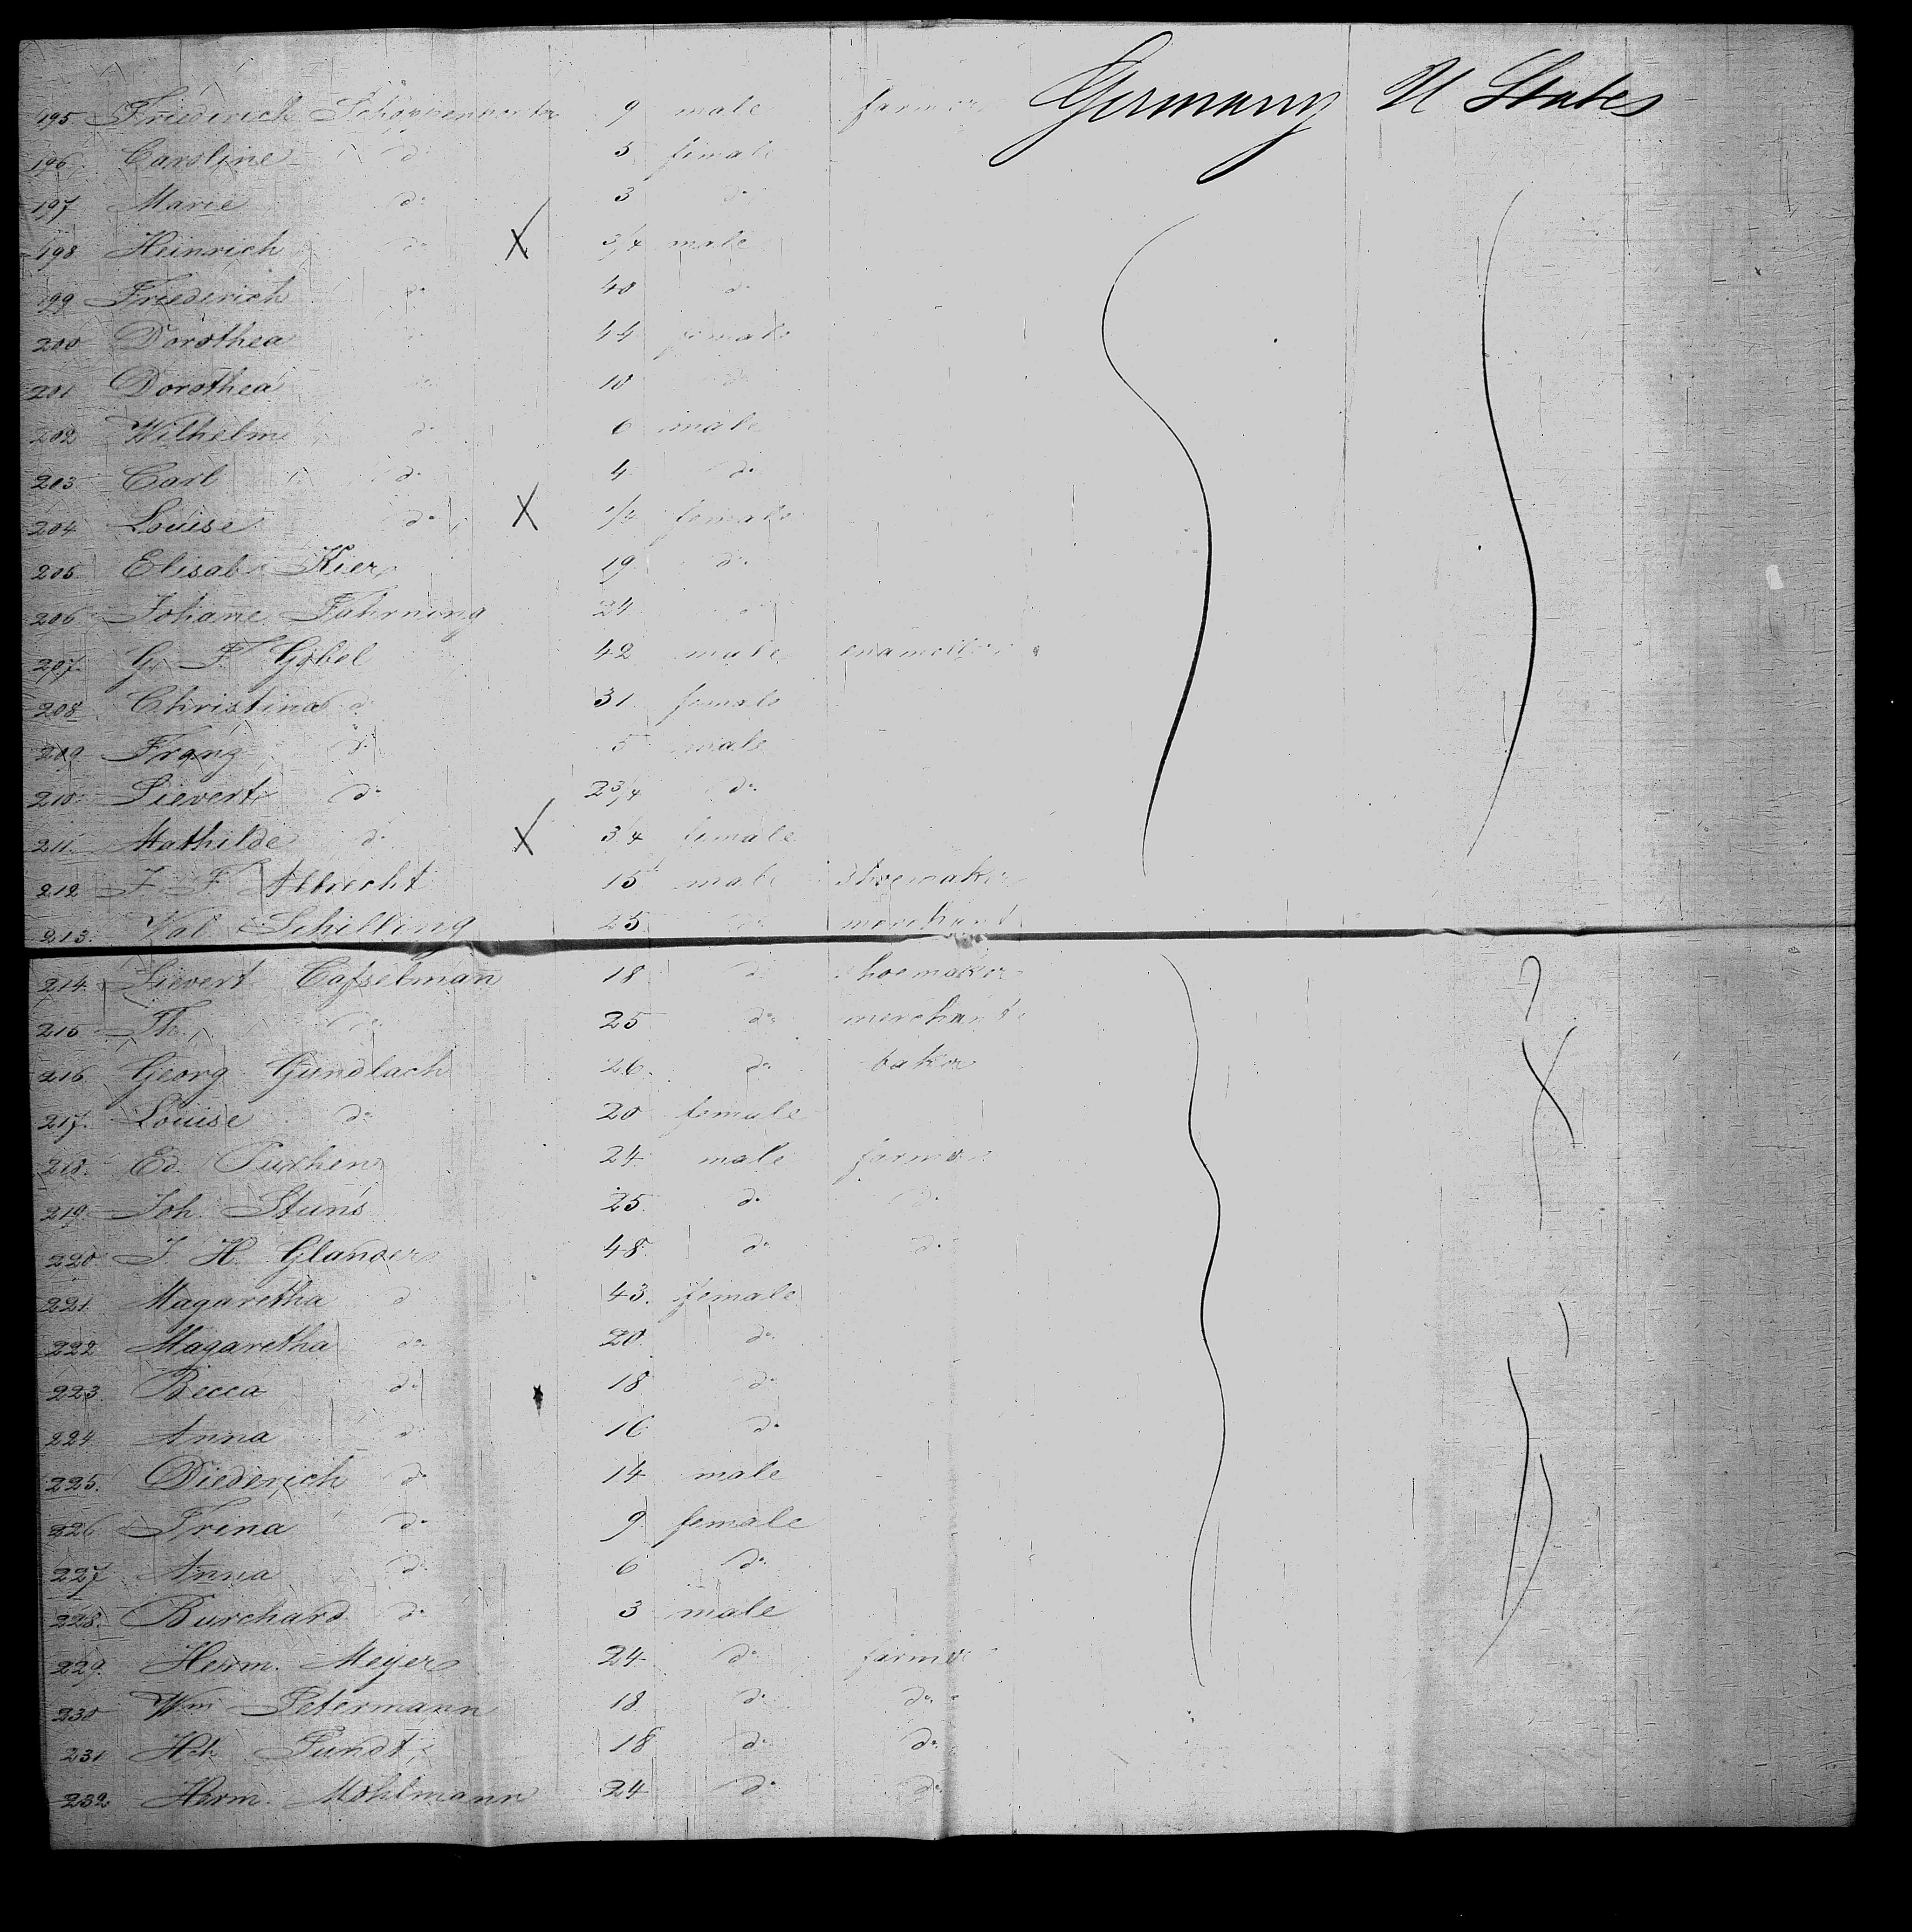 Germany U States
195 Friederich 9 male farmer
196 Caroline do 5 female
197 Marie do 3 do
198 Heinrich do X 3/4 male
199 Friederich do 40 do
200 Dorothea 44 female
201 Dorothea do 10 do
202 Wilhelm do 6 male
203 Carl do 4 do
204 Louise do X 1/4 female
205 Elisab. Kier 19 do
206 Johane Fahrning 24 do
207. G. F. Göbel 42 male
208 Christina do 31 female
209 Franz do 5 male
210 Sievert do 2 3/4 do
211. Mathilde do X 3/4 female
212 J. F. Albrecht 15 male shoemaker
213. Val. Schilling 25 do merchant
214 Sievert Casselman 18 do shoemaker
215 Th. do 25 do merchant
216 Georg Gundlach 26. do baker
217. Louise do 20 female
218. Ed. 24 male farmer
219. Joh. 25. do do
220 J. H. Glander 48 do do
221. Magaretha do 43. female
222 Magaretha do 20 do
223 Becca do 18 do
224 Anna do 16 do
225. Diederich do 14 male
226 Trina do 9 female
227 Anna do 6 do
228. Burchard do 3 male
229. Herm. Meyer 24 do farmer
230 Wm Petermann 18 do do
231 Hch. Pundt 18 do do
232 Herm. Möhlmann 24 do do